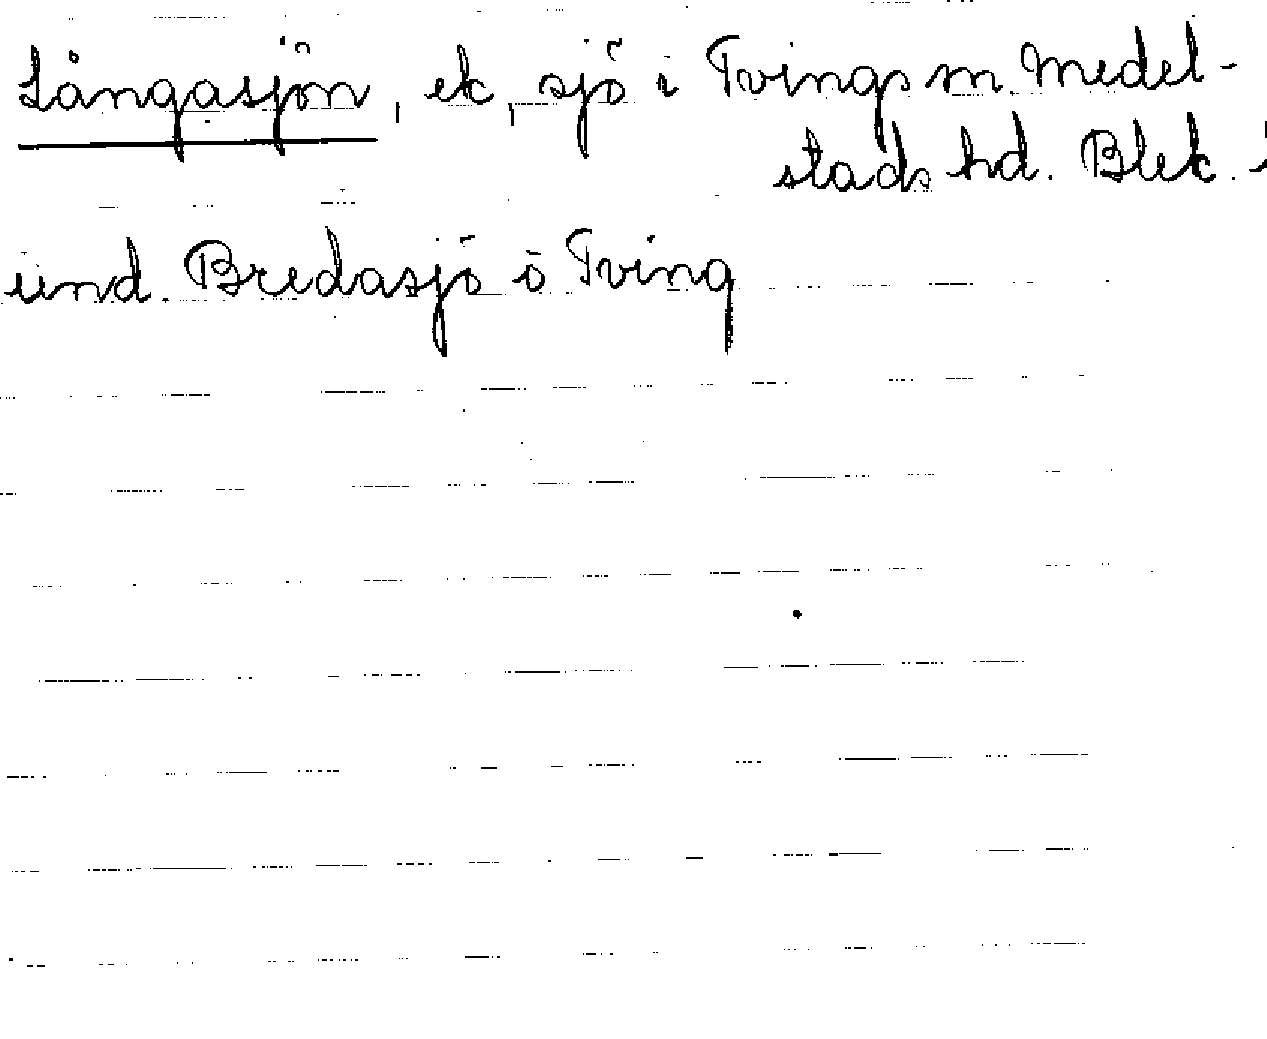 Långasjön, ek, sjö i Tvings sn. Medel-
stads hd. Blek. l
und. Bredasjö ö Tving